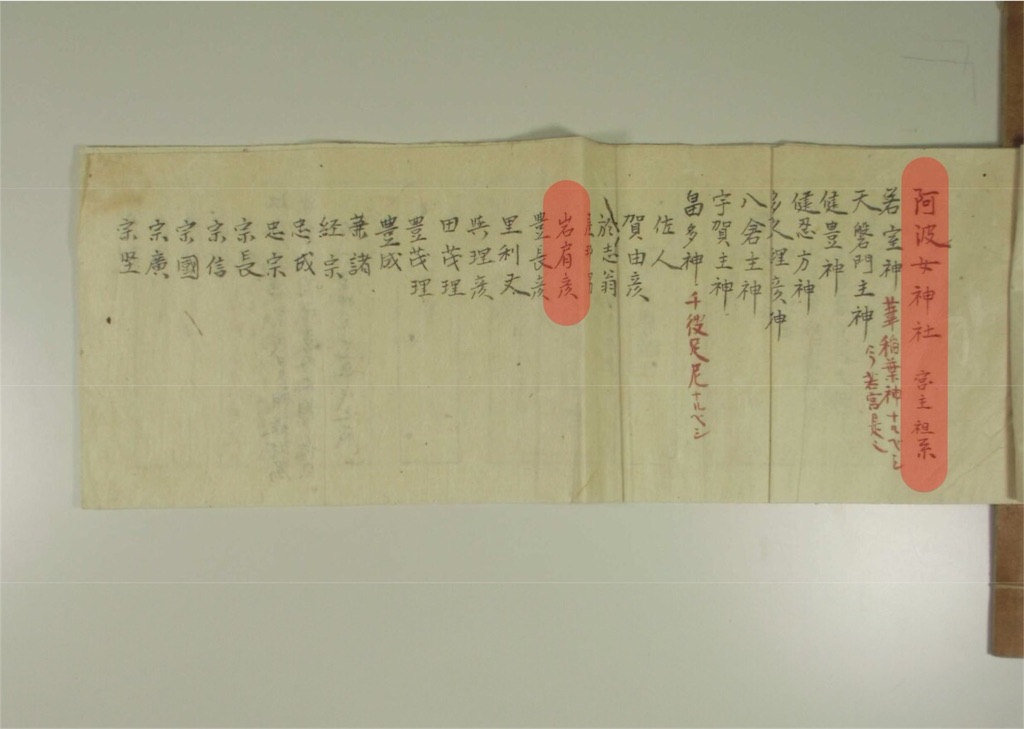 阿波女神社 宮主祖系
若室神 葦稲葉神ナルベシ
今若宮是也
天磐門主神
健豊神
健忍方神
多久理彦神
八倉主神
宇賀主神
畠多神 千従足尼ナルベシ
佐人
賀由彦
於志翁
岩肩彦
豊長彦
里利丈
與理彦
田茂理
豊茂理
豊成
兼諸
経宗
忠成
忠宗
宗長
宗信
宗國
宗廣
宗堅